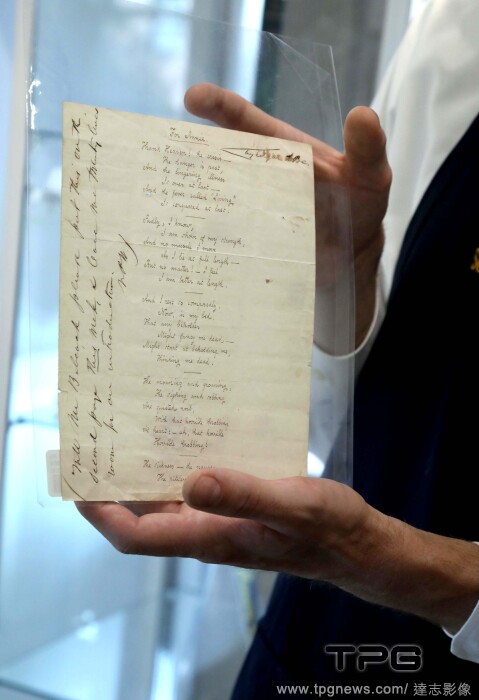 For Annie.
By Edgar A. Poe
Thank Heaven! the crisis—
The danger is past,
And the lingering illness
Is over at last—
And the fever called "Living"
Is conquered at last.
Sadly, I know,
I am shorn of my strength,
And no muscle I move
As I lie at full length—
But no matter!—I feel
I am better at length.
And I rest so composedly,
Now, in my bed,
That any beholder
Might fancy me dead—
Might start at beholding me,
Thinking me dead.
The moaning and groaning,
The sighing and sobbing
Are quieted now,
With that horrible throbbing
At heart:—ah, that horrible
Horrible throbbing!
The sickness— the
The
Will Mr please put this on the
second page this week, & leave me twenty lines
room for an introduction
TPG
www.tpgnews.com/ 達志影像